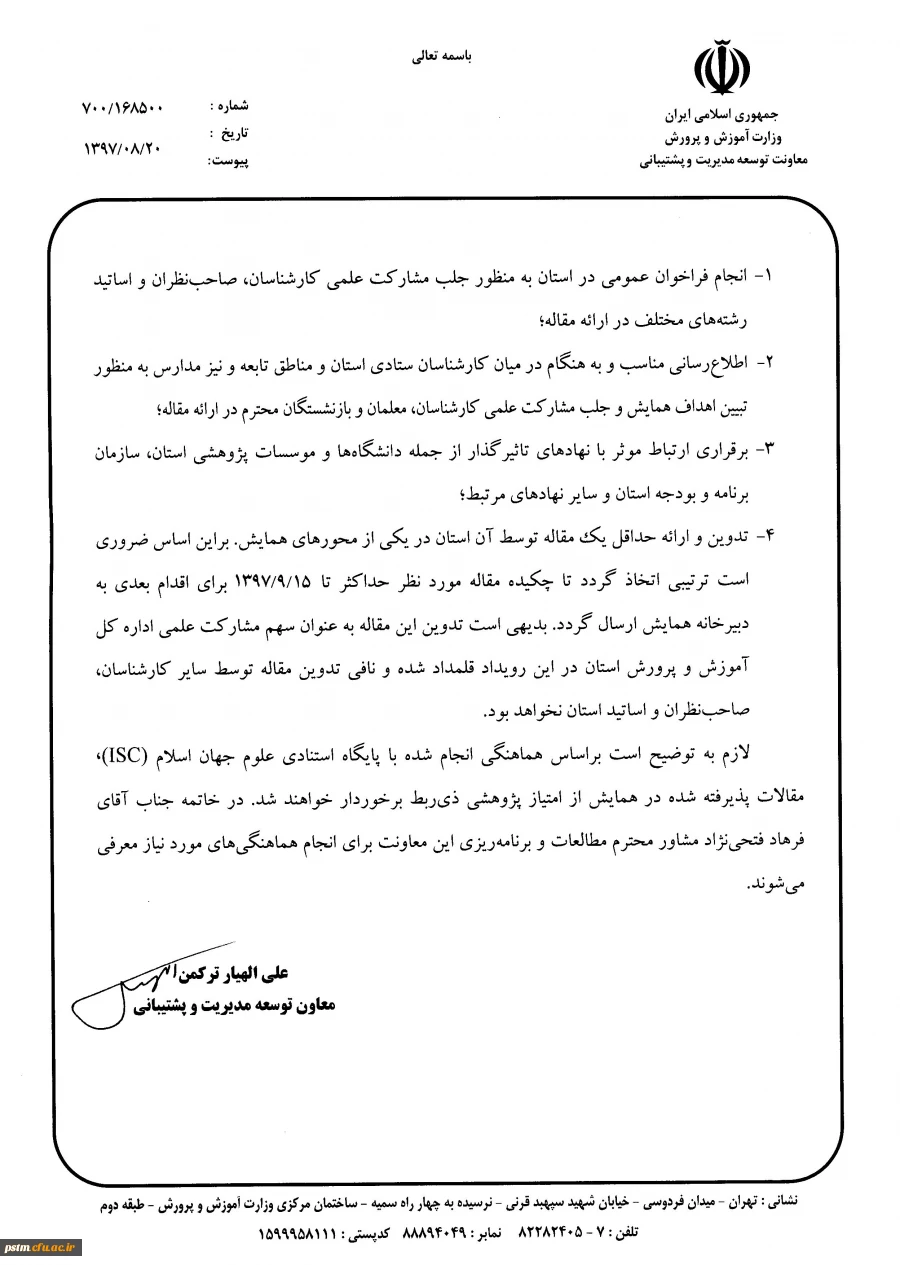 باسمه تعالی
جمهوری اسلامی ایران
وزارت آموزش و پرورش
معاونت توسعه مدیریت و پشتیبانی
شماره : ۷۰۰/۱۶۸۵۰۰
تاریخ : ۱۳۹۷/۰۸/۲۰
پیوست:
۱- انجام فراخوان عمومی در استان به منظور جلب مشارکت علمی کارشناسان، صاحب‌نظران و اساتید
رشته‌های مختلف در ارائه مقاله؛
۲- اطلاع‌رسانی مناسب و به هنگام در میان کارشناسان ستادی استان و مناطق تابعه و نیز مدارس به منظور
تبیین اهداف همایش و جلب مشارکت علمی کارشناسان، معلمان و بازنشستگان محترم در ارائه مقاله؛
۳- برقراری ارتباط موثر با نهادهای تاثیرگذار از جمله دانشگاه‌ها و موسسات پژوهشی استان، سازمان
برنامه و بودجه استان و سایر نهادهای مرتبط؛
۴- تدوین و ارائه حداقل یک مقاله توسط آن استان در یکی از محورهای همایش. براین اساس ضروری
است ترتیبی اتخاذ گردد تا چکیده مقاله مورد نظر حداکثر تا ۱۳۹۷/۹/۱۵ برای اقدام بعدی به
دبیرخانه همایش ارسال گردد. بدیهی است تدوین این مقاله به عنوان سهم مشارکت علمی اداره کل
آموزش و پرورش استان در این رویداد قلمداد شده و نافی تدوین مقاله توسط سایر کارشناسان،
صاحب‌نظران و اساتید استان نخواهد بود.
لازم به توضیح است براساس هماهنگی انجام شده با پایگاه استنادی علوم جهان اسلام (ISC)،
مقالات پذیرفته شده در همایش از امتیاز پژوهشی ذی‌ربط برخوردار خواهند شد. در خاتمه جناب آقای
فرهاد فتحی‌نژاد مشاور محترم مطالعات و برنامه‌ریزی این معاونت برای انجام هماهنگی‌های مورد نیاز معرفی
می‌شوند.
علی الهیار ترکمن
معاون توسعه مدیریت و پشتیبانی
نشانی : تهران - میدان فردوسی - خیابان شهید سپهبد قرنی - نرسیده به چهار راه سمیه - ساختمان مرکزی وزارت آموزش و پرورش - طبقه دوم
تلفن : ۷ - ۸۲۲۸۲۴۰۵ نمابر : ۸۸۸۹۴۰۴۹ کدپستی : ۱۵۹۹۹۵۸۱۱۱
pstm.cfu.ac.ir